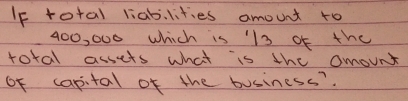 IF total liabilities amount to
400,000 which is 1/3 of the
total assets what is the amount
of capital of the business?.